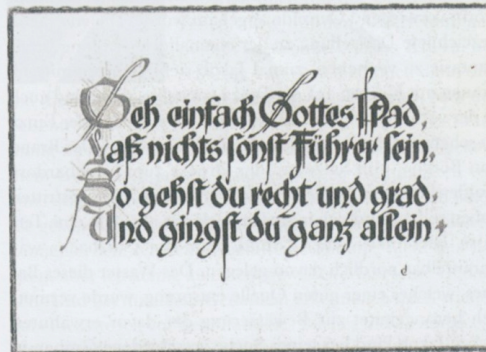 Geh einfach Gottes Pfad,
Laß nichts sonst Führer sein,
So gehst du recht und grad,
Und gingst du ganz allein.